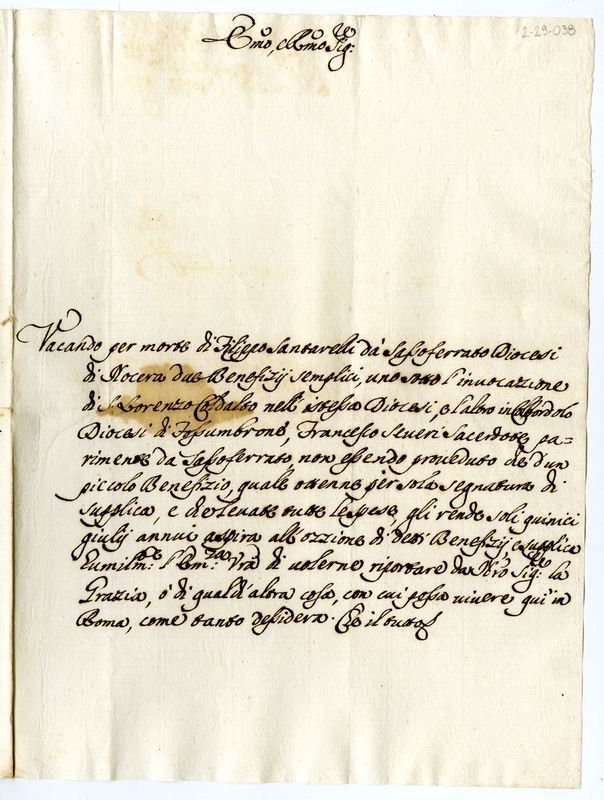 2-29-038
Emo, e Rmo Sig:re
Vacando per morte di Filippo Santarelli da Sassoferrato Diocesi
di Nocera due Benefizij semplici, uno sotto l'invocazione
di S. Lorenzo nell'istessa Diocesi, e l'altro in
Diocesi di Fossumbrone, Francesco Severi Sacerdote pa=
rimente da Sassoferrato, non essendo proveduto che d'un
piccolo Benefizio, quale ottenne per sola segnatura di
supplica, e che levate tutte le spese, gli rende soli quinici
giulij annui aspira all'ozzione di detti Benefizij, e supplica
Eumilm:te l'Em:za Vra di volerne riportare da Nro Sig:re la
Grazia, ò di qualch'altra cosa, con cui possa vivere quì in
Roma, come tanto dessidera. Che il tutto